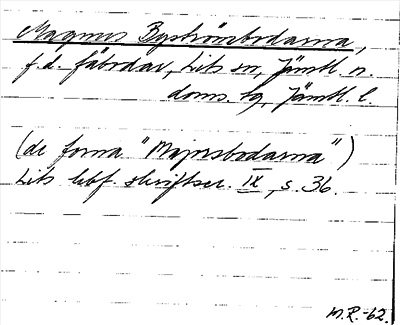 Magnus Byströmbodarna,
f.d. fäbodar, Lits sn, Jämtl. n.
doms. tg, Jämtl. l.
(de forna "Majorsbodarna")
Lits hbf. skriftser. IX, s. 36.
M.R.-62.